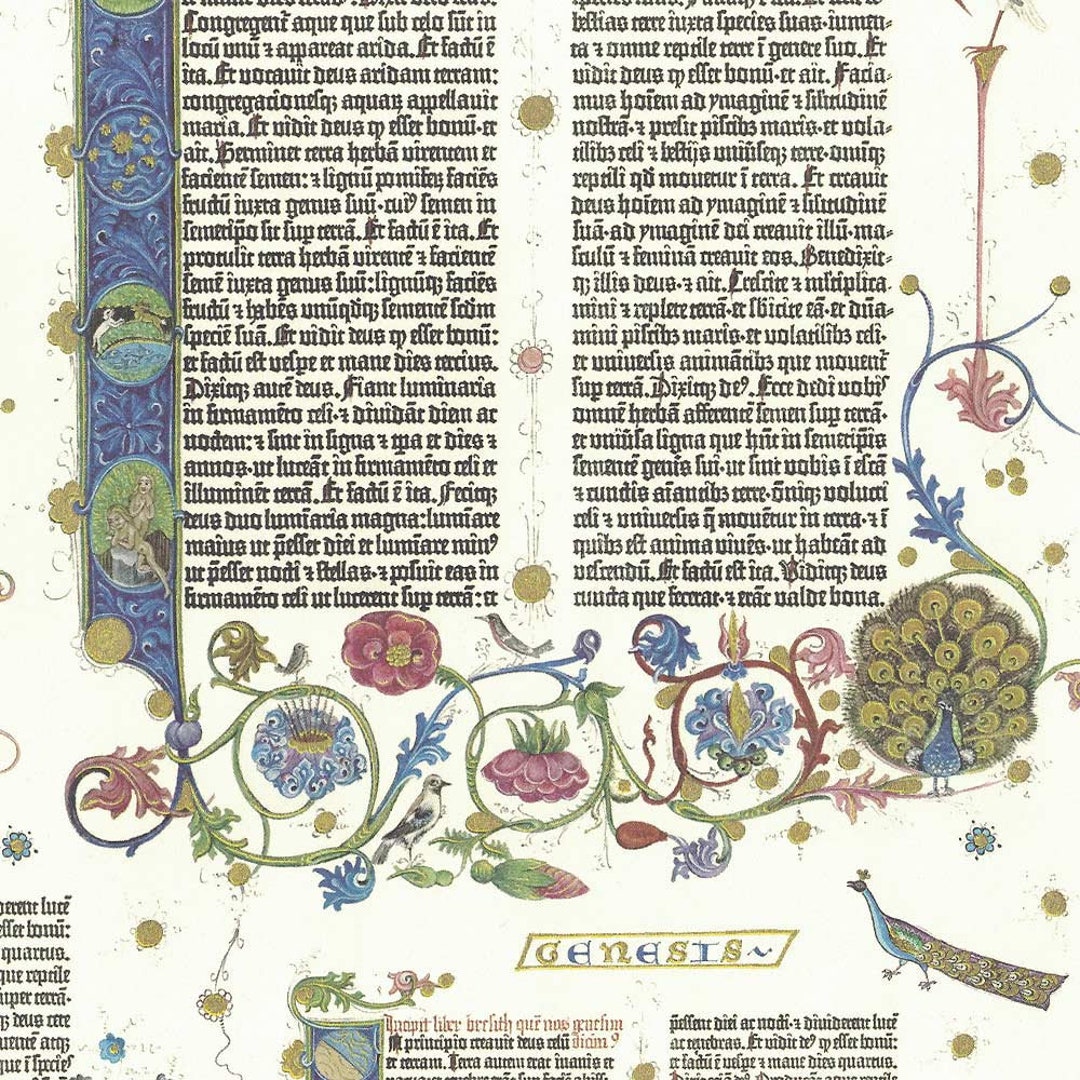 Congregent̃ aque que sub celo sũt in
locũ unũ ⁊ appareat arida. Et factũ ẽ
ita. Et vocavit deus aridam terram:
congregacionesqꝫ aquaꝝ appellauit
maria. Et vidit deus ꝙ esset bonũ·et
ait. Germinet terra herbã virentem et
facientẽ semen: ⁊ lignũ pomiferũ faciẽs
fructũ iuxta genus suũ·cuiꝰ semen in
semetip̃o sit sup terrã. Et factũ ẽ ita. Et
protulit terra herbã virentẽ ⁊ facientẽ
semẽ iuxta genus suũ: lignũqꝫ faciẽs
fructũ ⁊ habẽs unũqdqꝫ sementẽ scdm
speciẽ suã. Et vidit deus ꝙ esset bonũ:
et factũ est vesꝑe et mane dies tercius.
Dixitqꝫ autẽ deus. Fiant luminaria
in firmamẽto celi·⁊ dividãt diem ac
noctem: ⁊ sint in signa ⁊ tp̃a et dies ⁊
annos·ut luceãt in firmamẽto celi et
illuminẽt terrã. Et factũ ẽ ita. Fecitqꝫ
deus duo luminaria magna: luminare
maius ut p̃esset diei et luminare minꝰ
ut p̃esset nocti ⁊ stellas·⁊ posuit eas in
firmamẽto celi ut lucerent sup terrã: et
bestias terre iuxta species suas·iumen-
ta ⁊ omne reptile terre ĩ genere suo. Et
vidit deus ꝙ esset bonũ·et ait. Facia-
mus hoĩem ad ymaginẽ ⁊ silitudinẽ
nostrã·⁊ presit piscibꝫ maris·et vola-
tilibꝫ celi ⁊ bestijs universeqꝫ terre·omniqꝫ
reptili qd movetur ĩ terra. Et creavit
deus hoĩem ad ymaginẽ ⁊ silitudinẽ
suã·ad ymaginẽ dei creavit illũ·ma-
sculũ ⁊ feminã creavit eos. Benedixit-
qꝫ illis deus·⁊ ait. Crescite ⁊ mltiplica-
mini ⁊ replete terrã·et sbicite eã·et dñа-
mini piscibꝫ maris·et volatilibꝫ celi·
et universis animãtibꝫ que movent̃
sup terrã. Dixitqꝫ deꝰ. Ecce dedi vobis
omnẽ herbã afferentẽ semen sup terrã·
et uniṽsa ligna que hñt in semetip̃is
sementẽ genẽis sui·ut sint vobis ĩ escã
⁊ cunctis aĩantibꝫ terre·omiqꝫ volucri
celi ⁊ universis q̃ movẽtur in terra·⁊ ĩ
quibꝫ est anima vivẽs·ut habeãt ad
vescendũ. Et factũ est ita. Viditqꝫ deus
cuncta que fecerat·⁊ erãt valde bona.
GENESIS
derent lucẽ
esset bonũ:
quartus.
que reptile
super terrã·
qꝫ deus cete
que ĩ species
Incipit liber bresith quẽ nos genesim
In principio creavit deus celũ dicimꝰ
et terram. Terra autem erat inanis et
p̃essent diei ac nocti·⁊ dividerent lucẽ
ac tenebras. Et vidit deꝰ ꝙ esset bonũ:
et factũ ẽ vesꝑe ⁊ mane dies quartus.